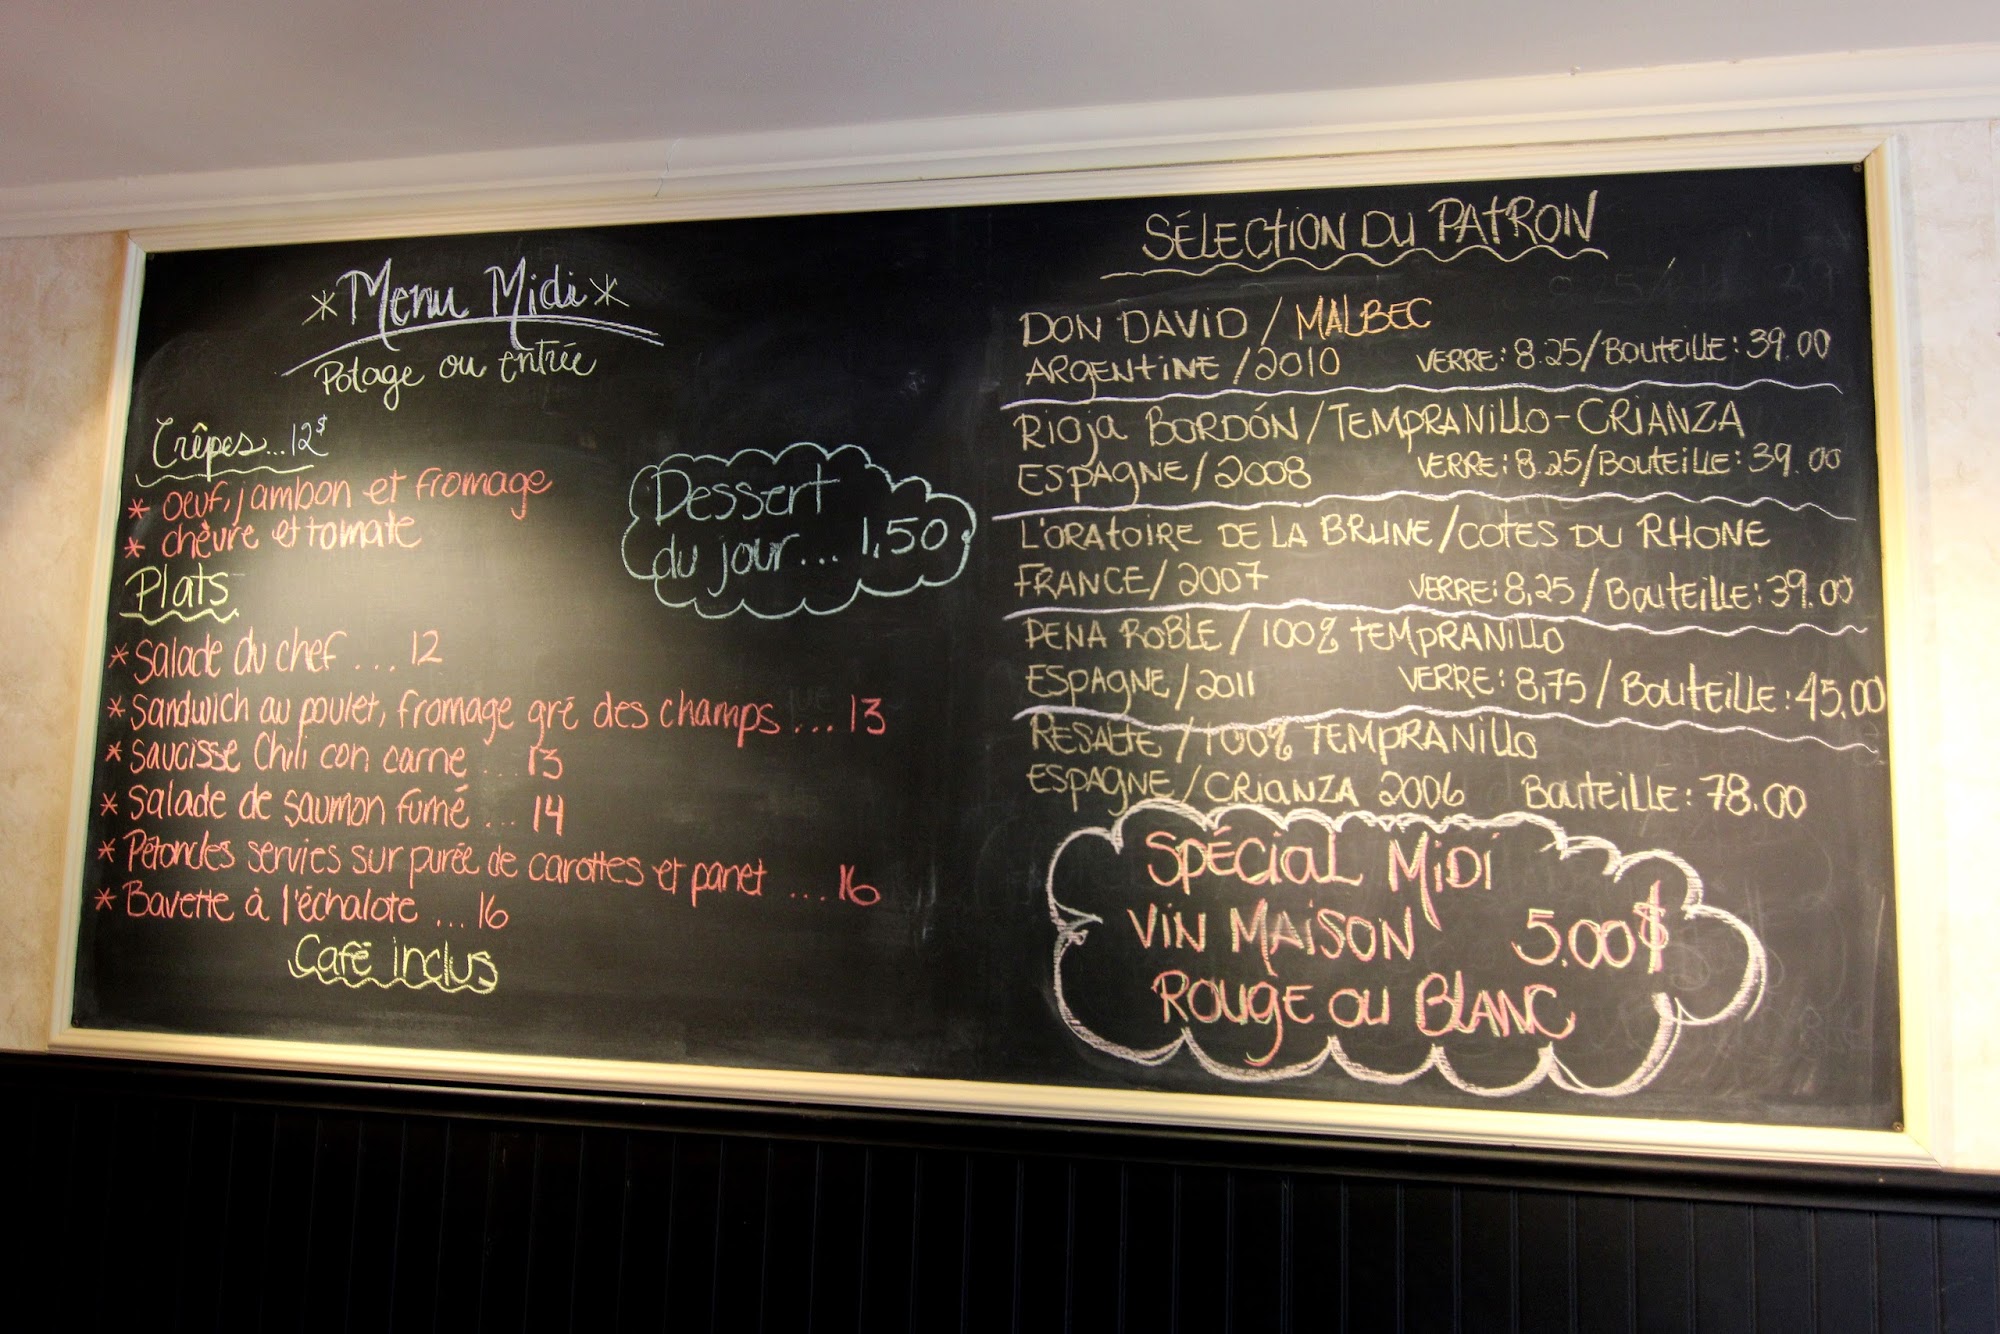 *Menu Midi*
Potage ou entrée
Crêpes...12$
* oeuf, jambon et fromage
* chèvre et tomate
Dessert
du jour... 1,50
Plats
* Salade du chef ... 12
* Sandwich au poulet, fromage gré des champs ... 13
* Saucisse Chili con carne ... 13
* Salade de saumon fumé ... 14
* Pétoncles servies sur purée de carottes et panet ... 16
* Bavette à l'échalote ... 16
Café inclus
SÉLECTION DU PATRON
DON DAVID / MALBEC
ARGENTINE / 2010 VERRE: 8.25 / BOUTEILLE: 39.00
RIOJA BORDÓN / TEMPRANILLO - CRIANZA
ESPAGNE / 2008 VERRE: 8.25 / BOUTEILLE: 39.00
L'ORATOIRE DE LA BRUNE / COTES DU RHONE
FRANCE / 2007 VERRE: 8,25 / BOUTEILLE: 39.00
PENA ROBLE / 100% TEMPRANILLO
ESPAGNE / 2011 VERRE: 8,75 / BOUTEILLE: 45.00
RESALTE / 100% TEMPRANILLO
ESPAGNE / CRIANZA 2006 BOUTEILLE: 78.00
SPÉCIAL MIDI
VIN MAISON 5.00$
ROUGE OU BLANC